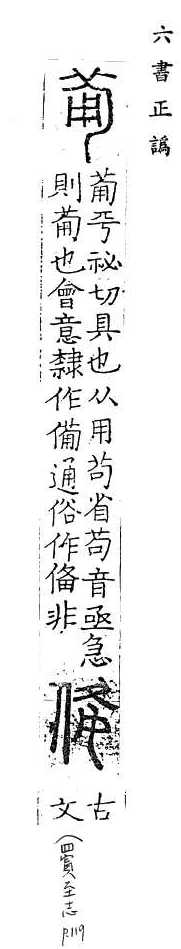 六書正譌
𤰇
𤰇平祕切具也从用茍省茍音亟急
則𤰇也會意隸作備通俗作俻非
古
文
(四寘至志
p.119